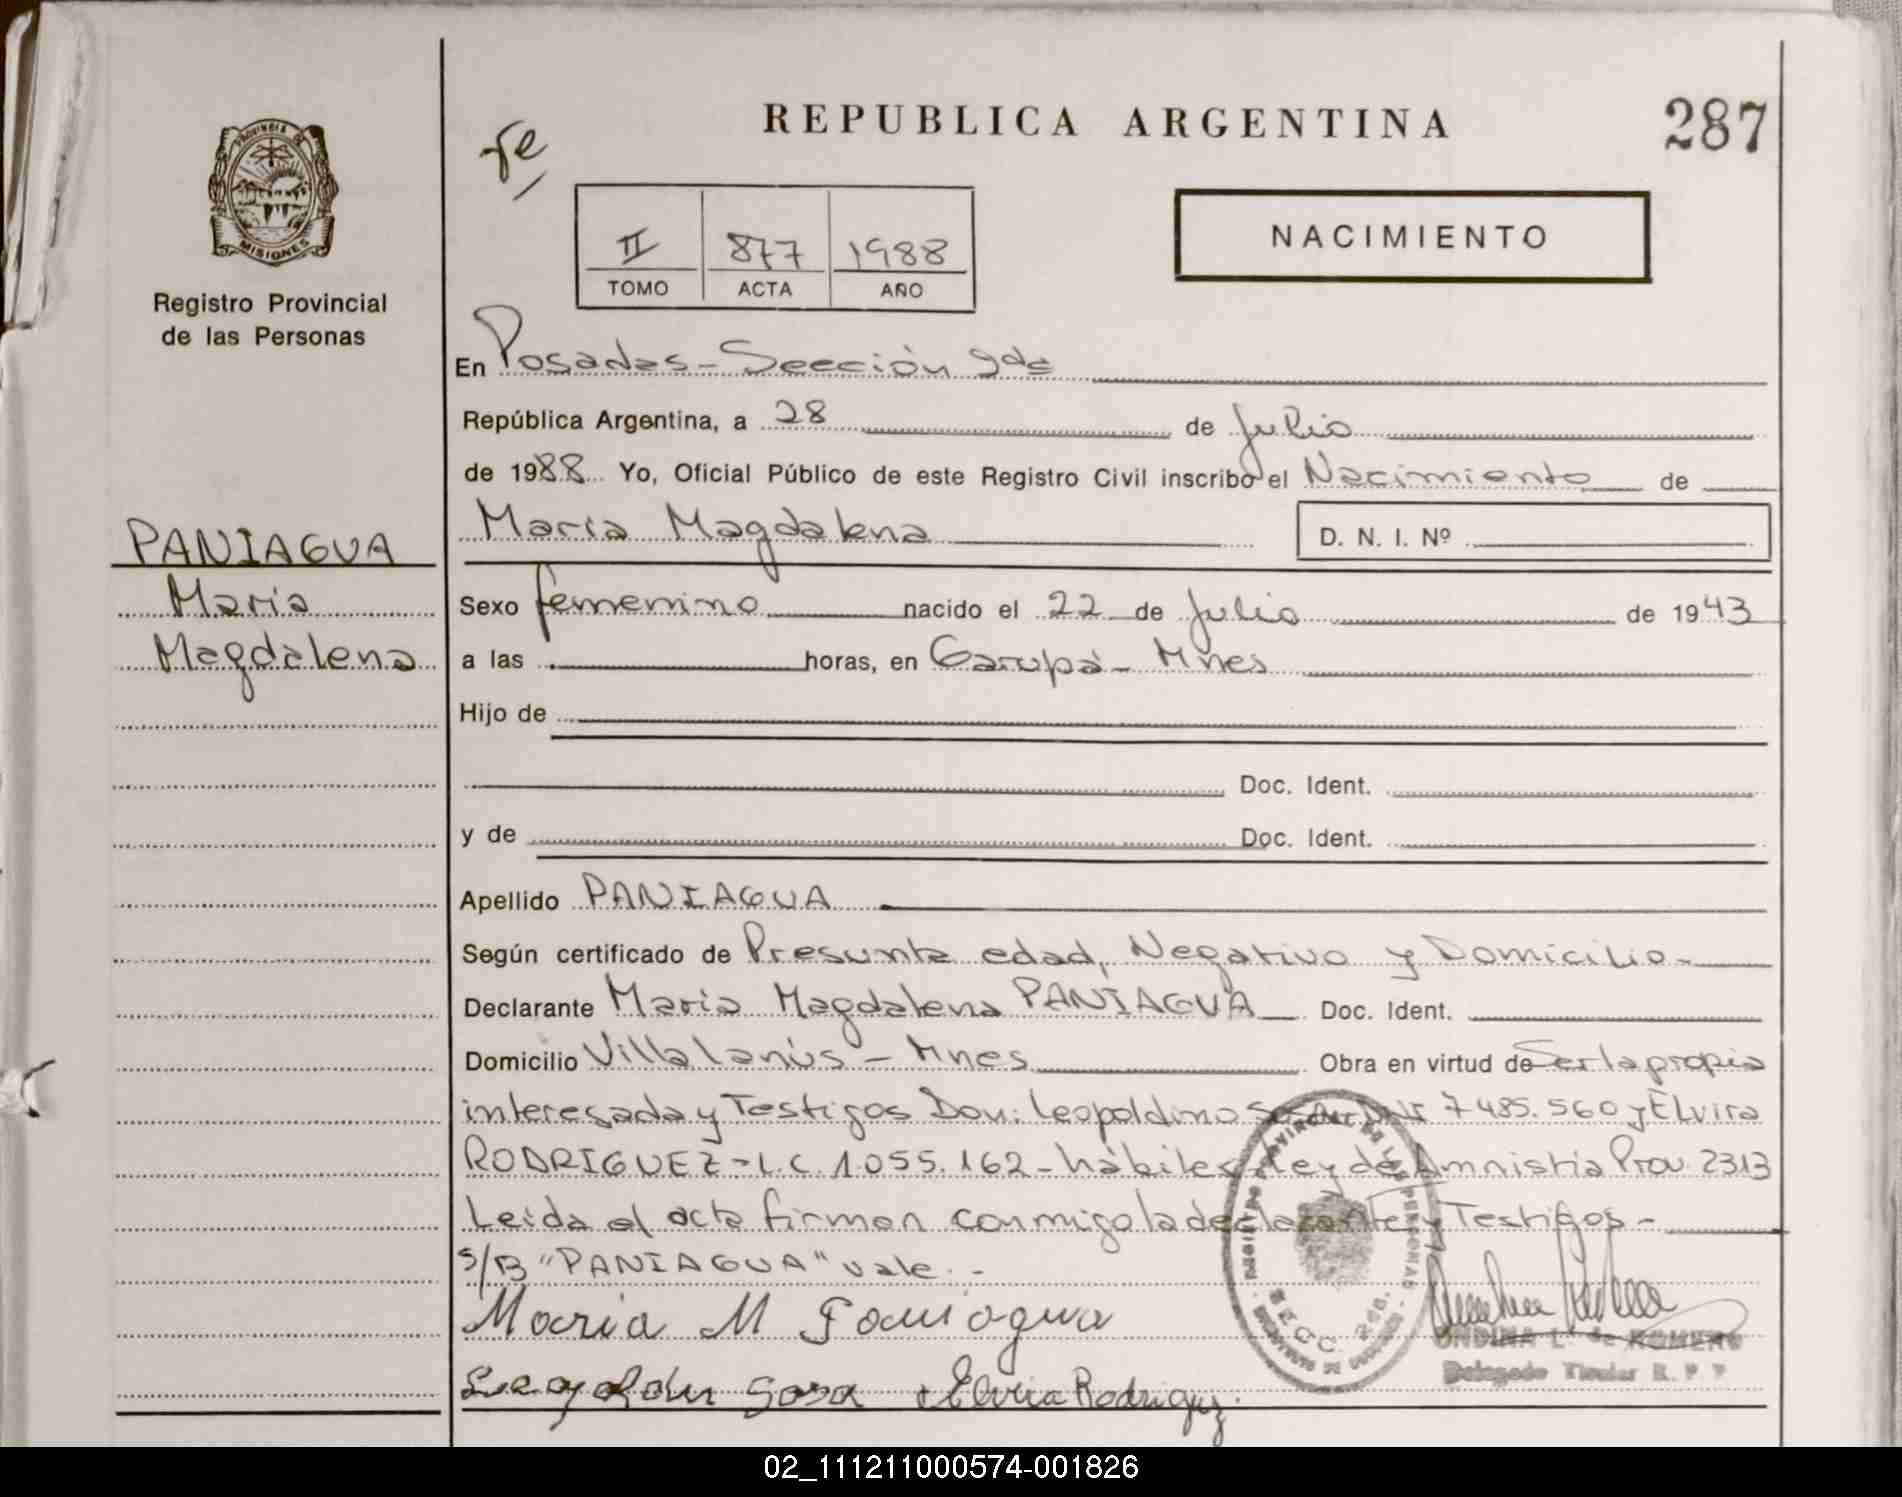 REPUBLICA ARGENTINA
287
PROVINCIA DE
MISIONES
Registro Provincial
de las Personas
II 877 1988
TOMO ACTA AÑO
NACIMIENTO
En Posadas - Sección 2da
República Argentina, a 28 de Julio
de 1988 Yo, Oficial Público de este Registro Civil inscribo el Nacimiento de
María Magdalena D. N. I. Nº
PANIAGUA
María
Magdalena
Sexo femenino nacido el 22 de Julio de 1943
a las horas, en Garupá - Mnes
Hijo de
Doc. Ident.
y de Doc. Ident.
Apellido PANIAGUA
Según certificado de Presunta edad, Negativo y Domicilio -
Declarante María Magdalena PANIAGUA Doc. Ident.
Domicilio Villa Lanús - Mnes Obra en virtud de Ser la propia
interesada y Testigos Don: Leopoldino DNI 7485.560 y Elvira
RODRIGUEZ - L.C. 1.055.162 - hábiles - Ley de Amnistía Prov. 2313
Leída el acta firman conmigo la declarante y Testigos -
S/B "PANIAGUA" vale. -
Maria M Paniagua
Sosa Elvira Rodriguez
ONDINA L. de ROMERO
Delegado Titular R. P. P
REGISTRO PROVINCIAL DE LAS PERSONAS
SECC. 2da.
02_111211000574-001826